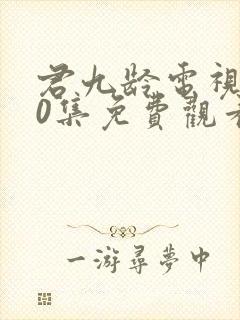 君九龄電視
0集免費觀看
一游尋夢中